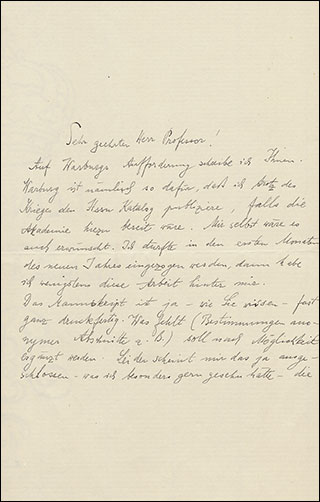 Sehr geehrter Herr Professor!
Auf Warburgs Aufforderung schreibe ich Ihnen.
Warburg ist nämlich so dafür, daß ich trotz des
Krieges den Katalog publiziere, falls die
Akademie hiezu bereit wäre. Mir selbst wäre es
auch erwünscht. Ich dürfte in den ersten Monaten
des neuen Jahres eingezogen werden, dann habe
ich wenigstens diese Arbeit hinter mir.
Das Manuskript ist ja – wie Sie wissen – fast
ganz druckfertig. Was fehlt (Bestimmungen ano-
nymer Abschnitte z. B.) soll nach Möglichkeit
ergänzt werden. Leider scheint mir das ja ausge-
schlossen – was ich besonders gern gesehn hätte – die